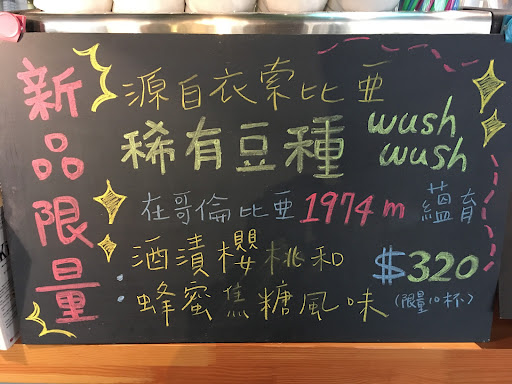 新品限量
源自衣索比亞
稀有豆種 wush wush
在哥倫比亞1974m 蘊育
酒漬櫻桃和
蜂蜜焦糖風味
$320
(限量10杯)